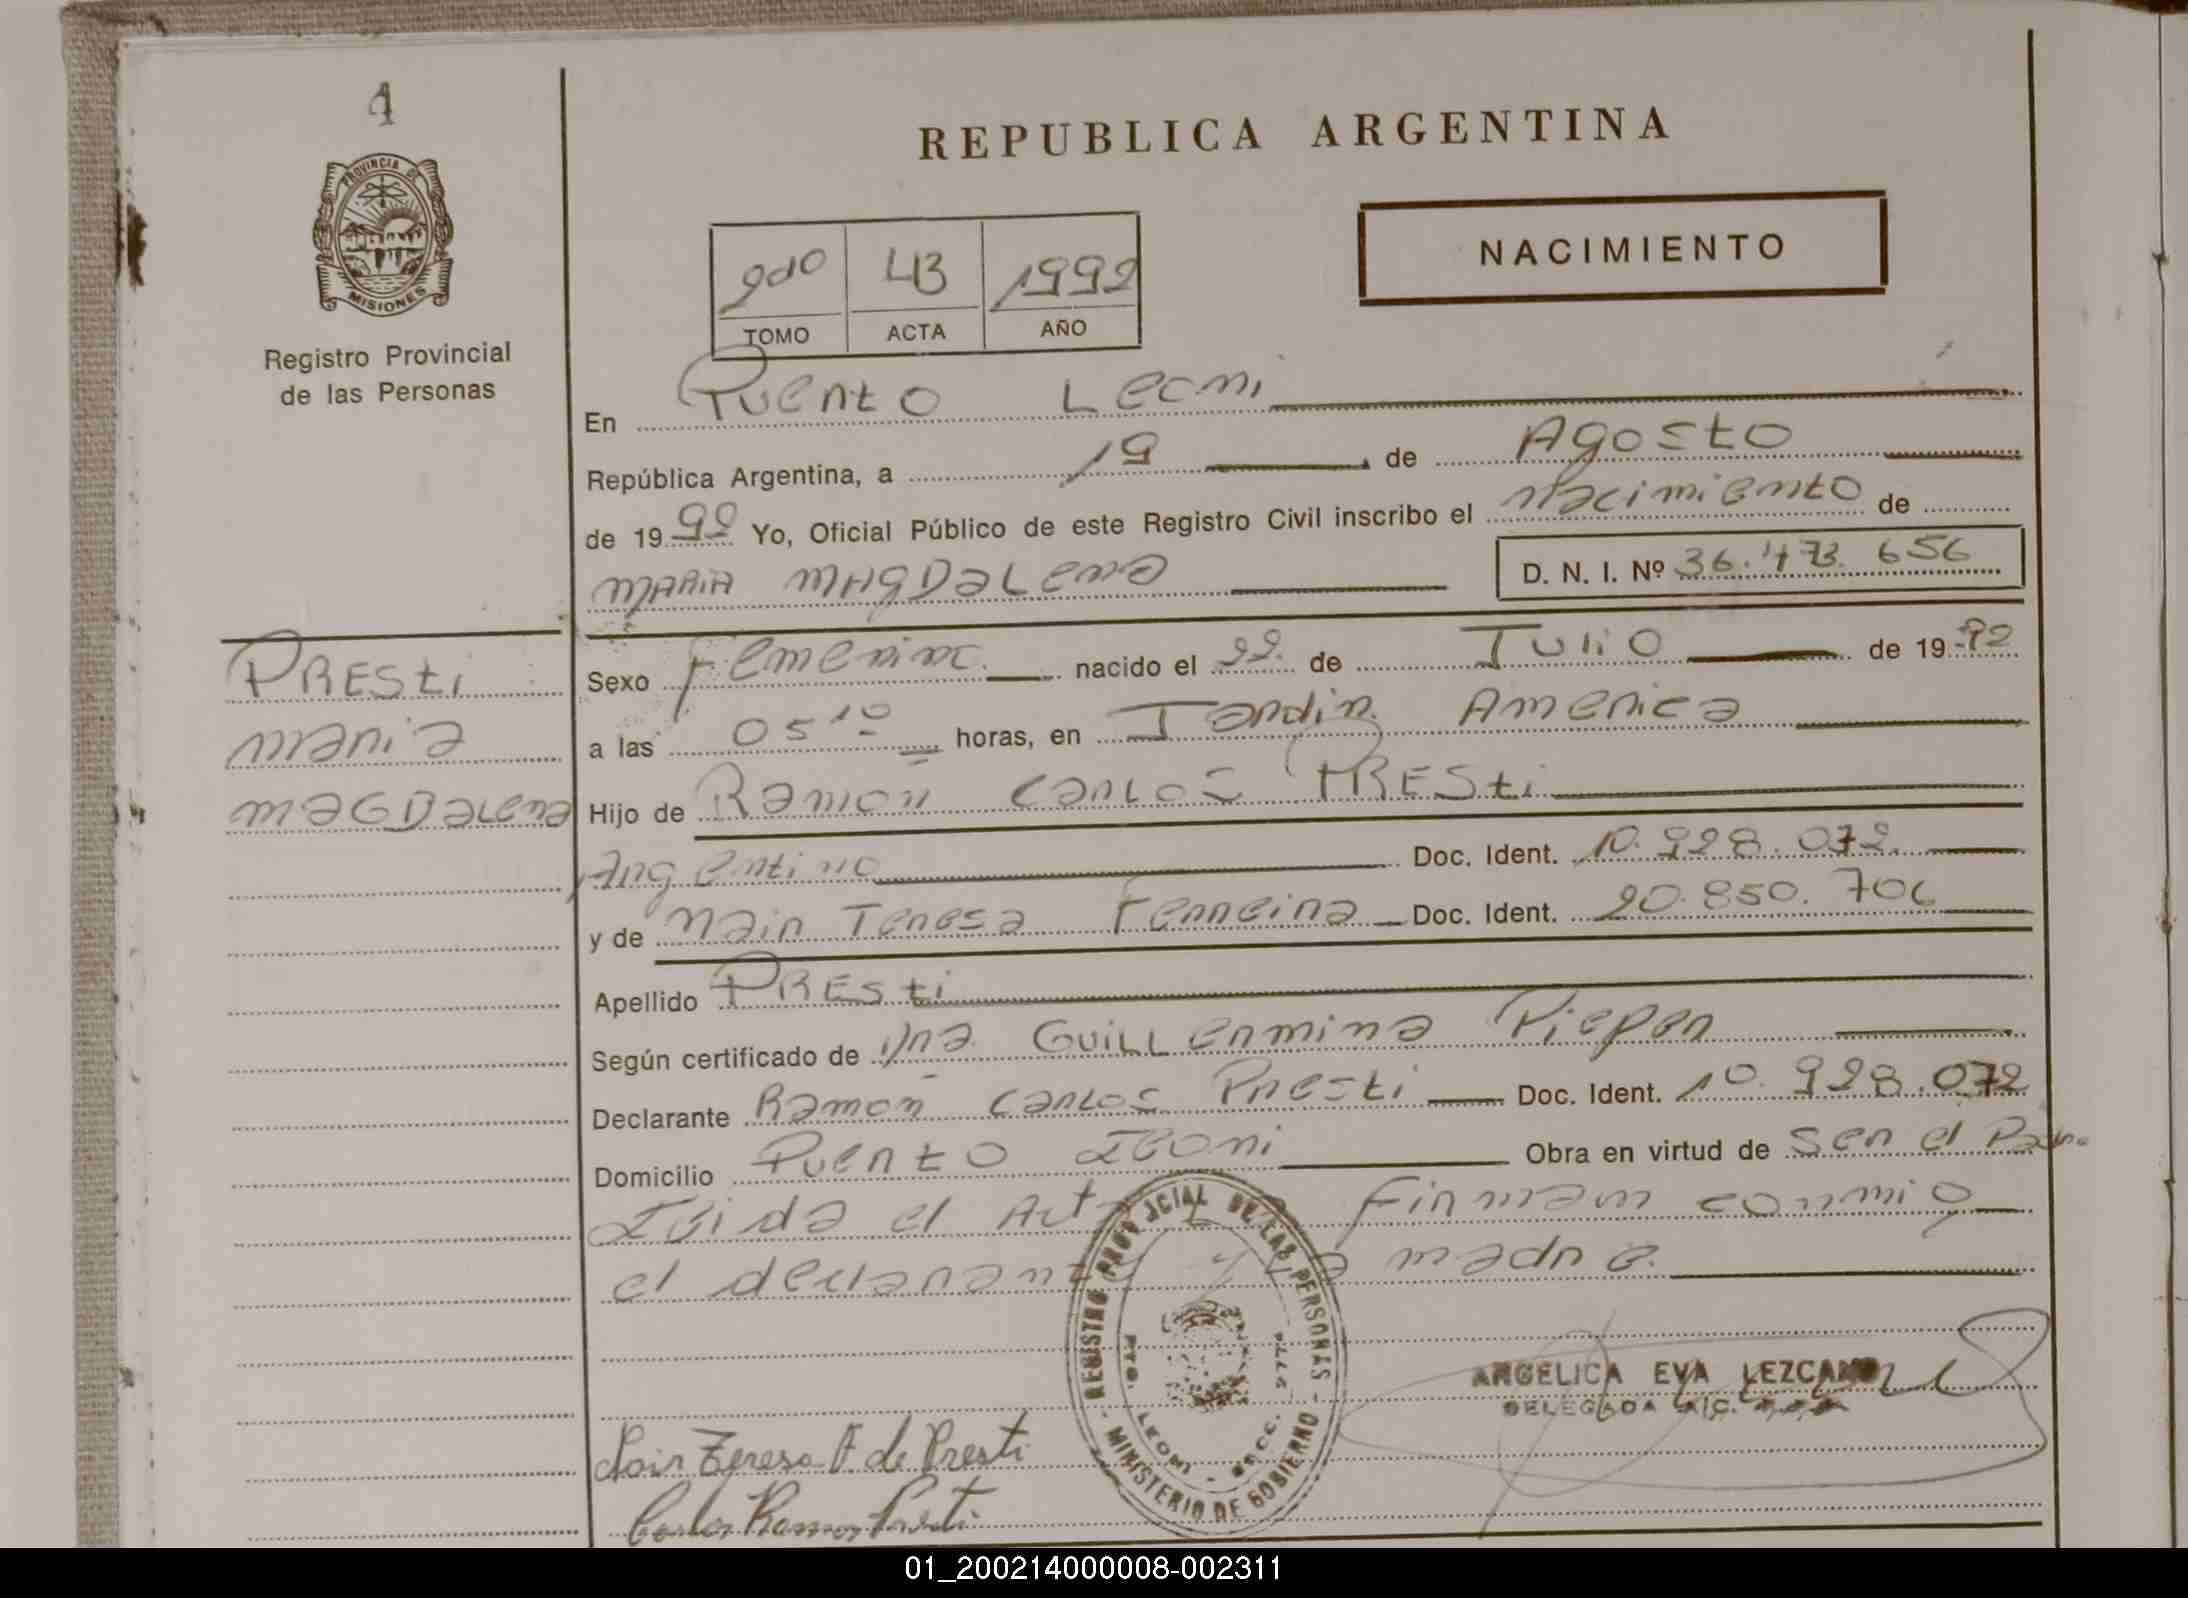 4
PROVINCIA DE
MISIONES
Registro Provincial
de las Personas
REPUBLICA ARGENTINA
NACIMIENTO
2do 43 1992
TOMO ACTA AÑO
En Puerto Leoni
República Argentina, a 19 de Agosto
de 1992 Yo, Oficial Público de este Registro Civil inscribo el nacimiento de
MARIA MAGDALENA D. N. I. Nº 36.473.656
PRESti
maria
MAGDALENA
Sexo Femenino nacido el 22 de Julio de 1992
a las 05 10 horas, en Jardin America
Hijo de Ramon Carlos PRESti
Argentino Doc. Ident. 10.928.072
y de Nair Teresa Ferreira Doc. Ident. 20.850.706
Apellido PRESti
Según certificado de Dra. Guillermina Pieper
Declarante Ramon Carlos Presti Doc. Ident. 10.928.072
Domicilio Puerto Leoni Obra en virtud de Ser el Padre
Leida el Acta firman conmigo
el declarante y la madre.
REGISTRO PROVINCIAL DE LAS PERSONAS
MINISTERIO DE GOBIERNO
PTO. LEONI - SECC.
ANGELICA EVA LEZCANO
DELEGADA
Nair Teresa F. de Presti
Carlos Ramon Presti
01_200214000008-002311